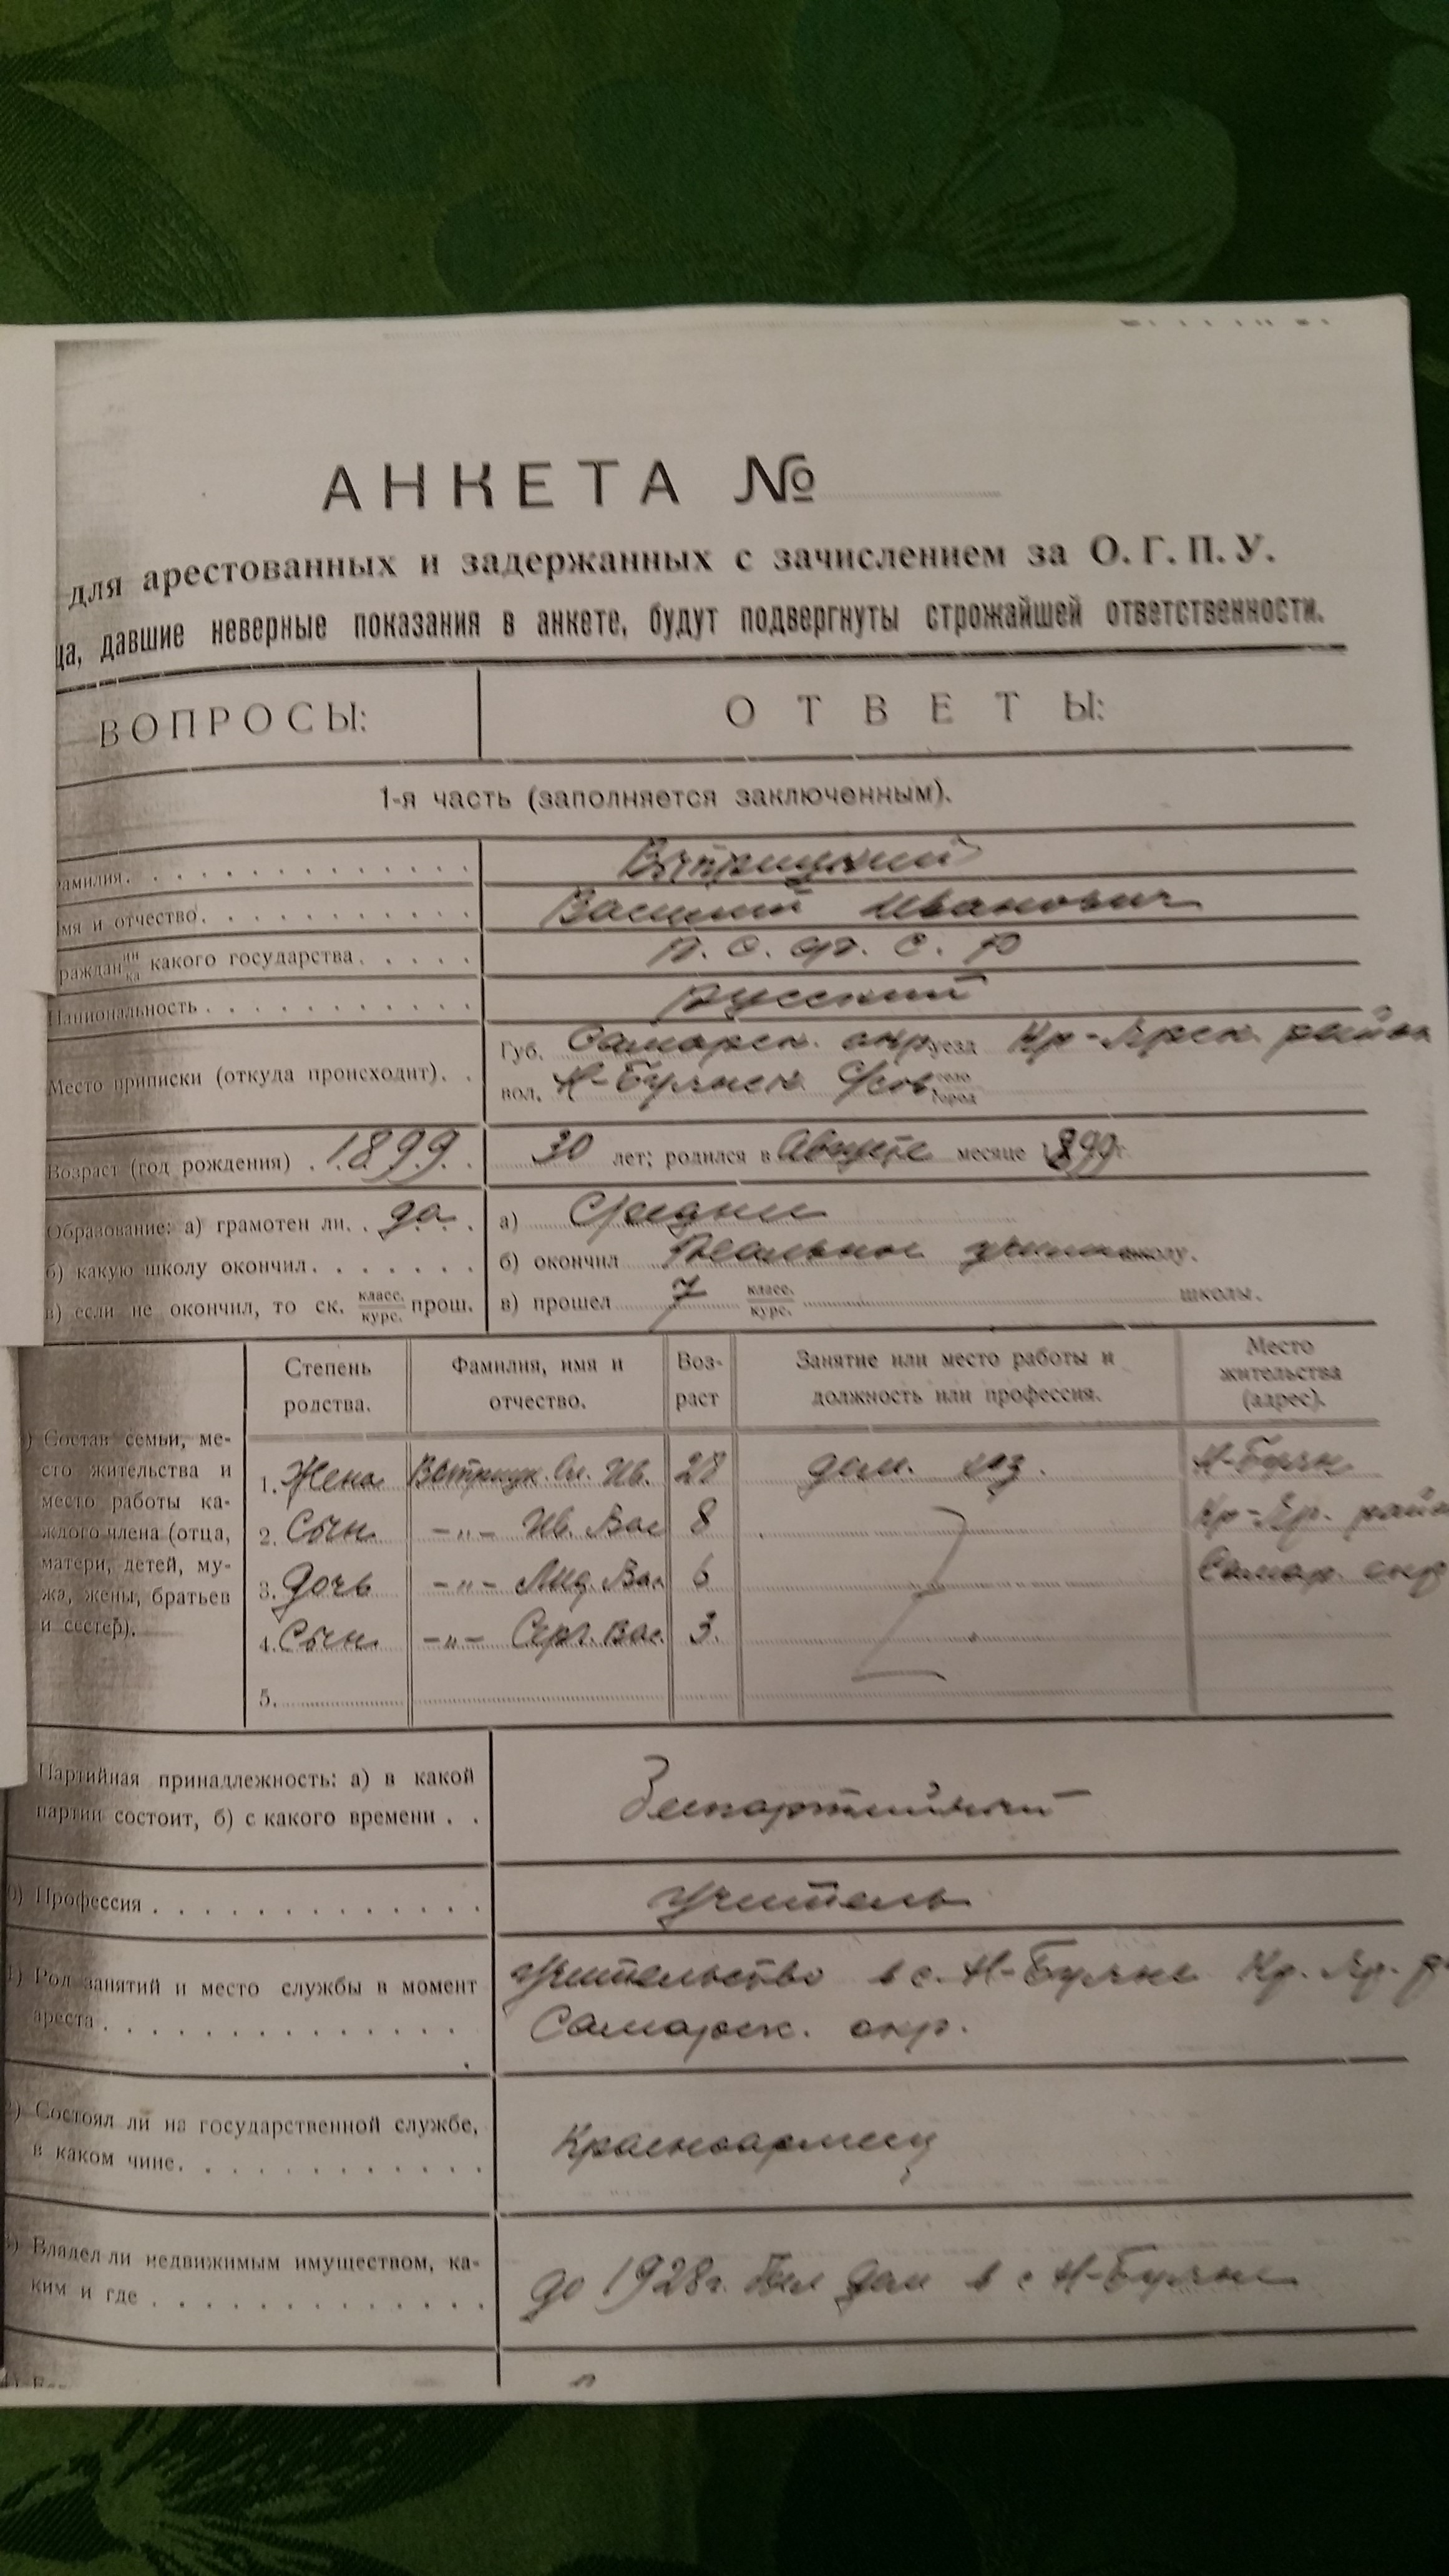 АНКЕТА №
для арестованных и задержанных с зачислением за О. Г. П. У.
ца, давшие неверные показания в анкете, будут подвергнуты строжайшей ответственности.
ВОПРОСЫ: ОТВЕТЫ:
1-я часть (заполняется заключенным).
амилия.
мя и отчество. Василий Иванович
раждан ин ка какого государства. Р. С. Ф. С. Р
Национальность русский
Место приписки (откуда происходит). Губ. Самарск. окр уезд Кр-Ярск район
вол. Н-Буянск село город
Возраст (год рождения) 1899 30 лет; родился в Августе месяце 1899 г.
Образование: а) грамотен ли. да а) Средни
б) какую школу окончил б) окончил Реальное школу.
в) если не окончил, то ск. класс. курс. прош. в) прошел 7 класс. курс. школы.
Степень родства. Фамилия, имя и отчество. Возраст Занятие или место работы и должность или профессия. Место жительства (адрес).
) Состав семьи, ме-
сто жительства и
место работы ка-
ждого члена (отца,
матери, детей, му-
жа, жены, братьев
и сестер).
1. Жена Ив. 28 дом. хоз. Н-Буян
2. Сын -„- Ив. Вас 8 Кр-Яр. район
3. Дочь -„- Лид. Вас 6 Самар. окр
4. Сын -„- Серг. Вас. 3.
5.
Партийная принадлежность: а) в какой
партии состоит, б) с какого времени Беспартийный
0) Профессия учитель
1) Род занятий и место службы в момент
ареста учительство в с. Н-Буяне Кр. Яр. р
Самарск. окр.
) Состоял ли на государственной службе,
в каком чине. Красноармеец
) Владел ли недвижимым имуществом, ка-
ким и где до 1928г. был дом в с Н-Буяне